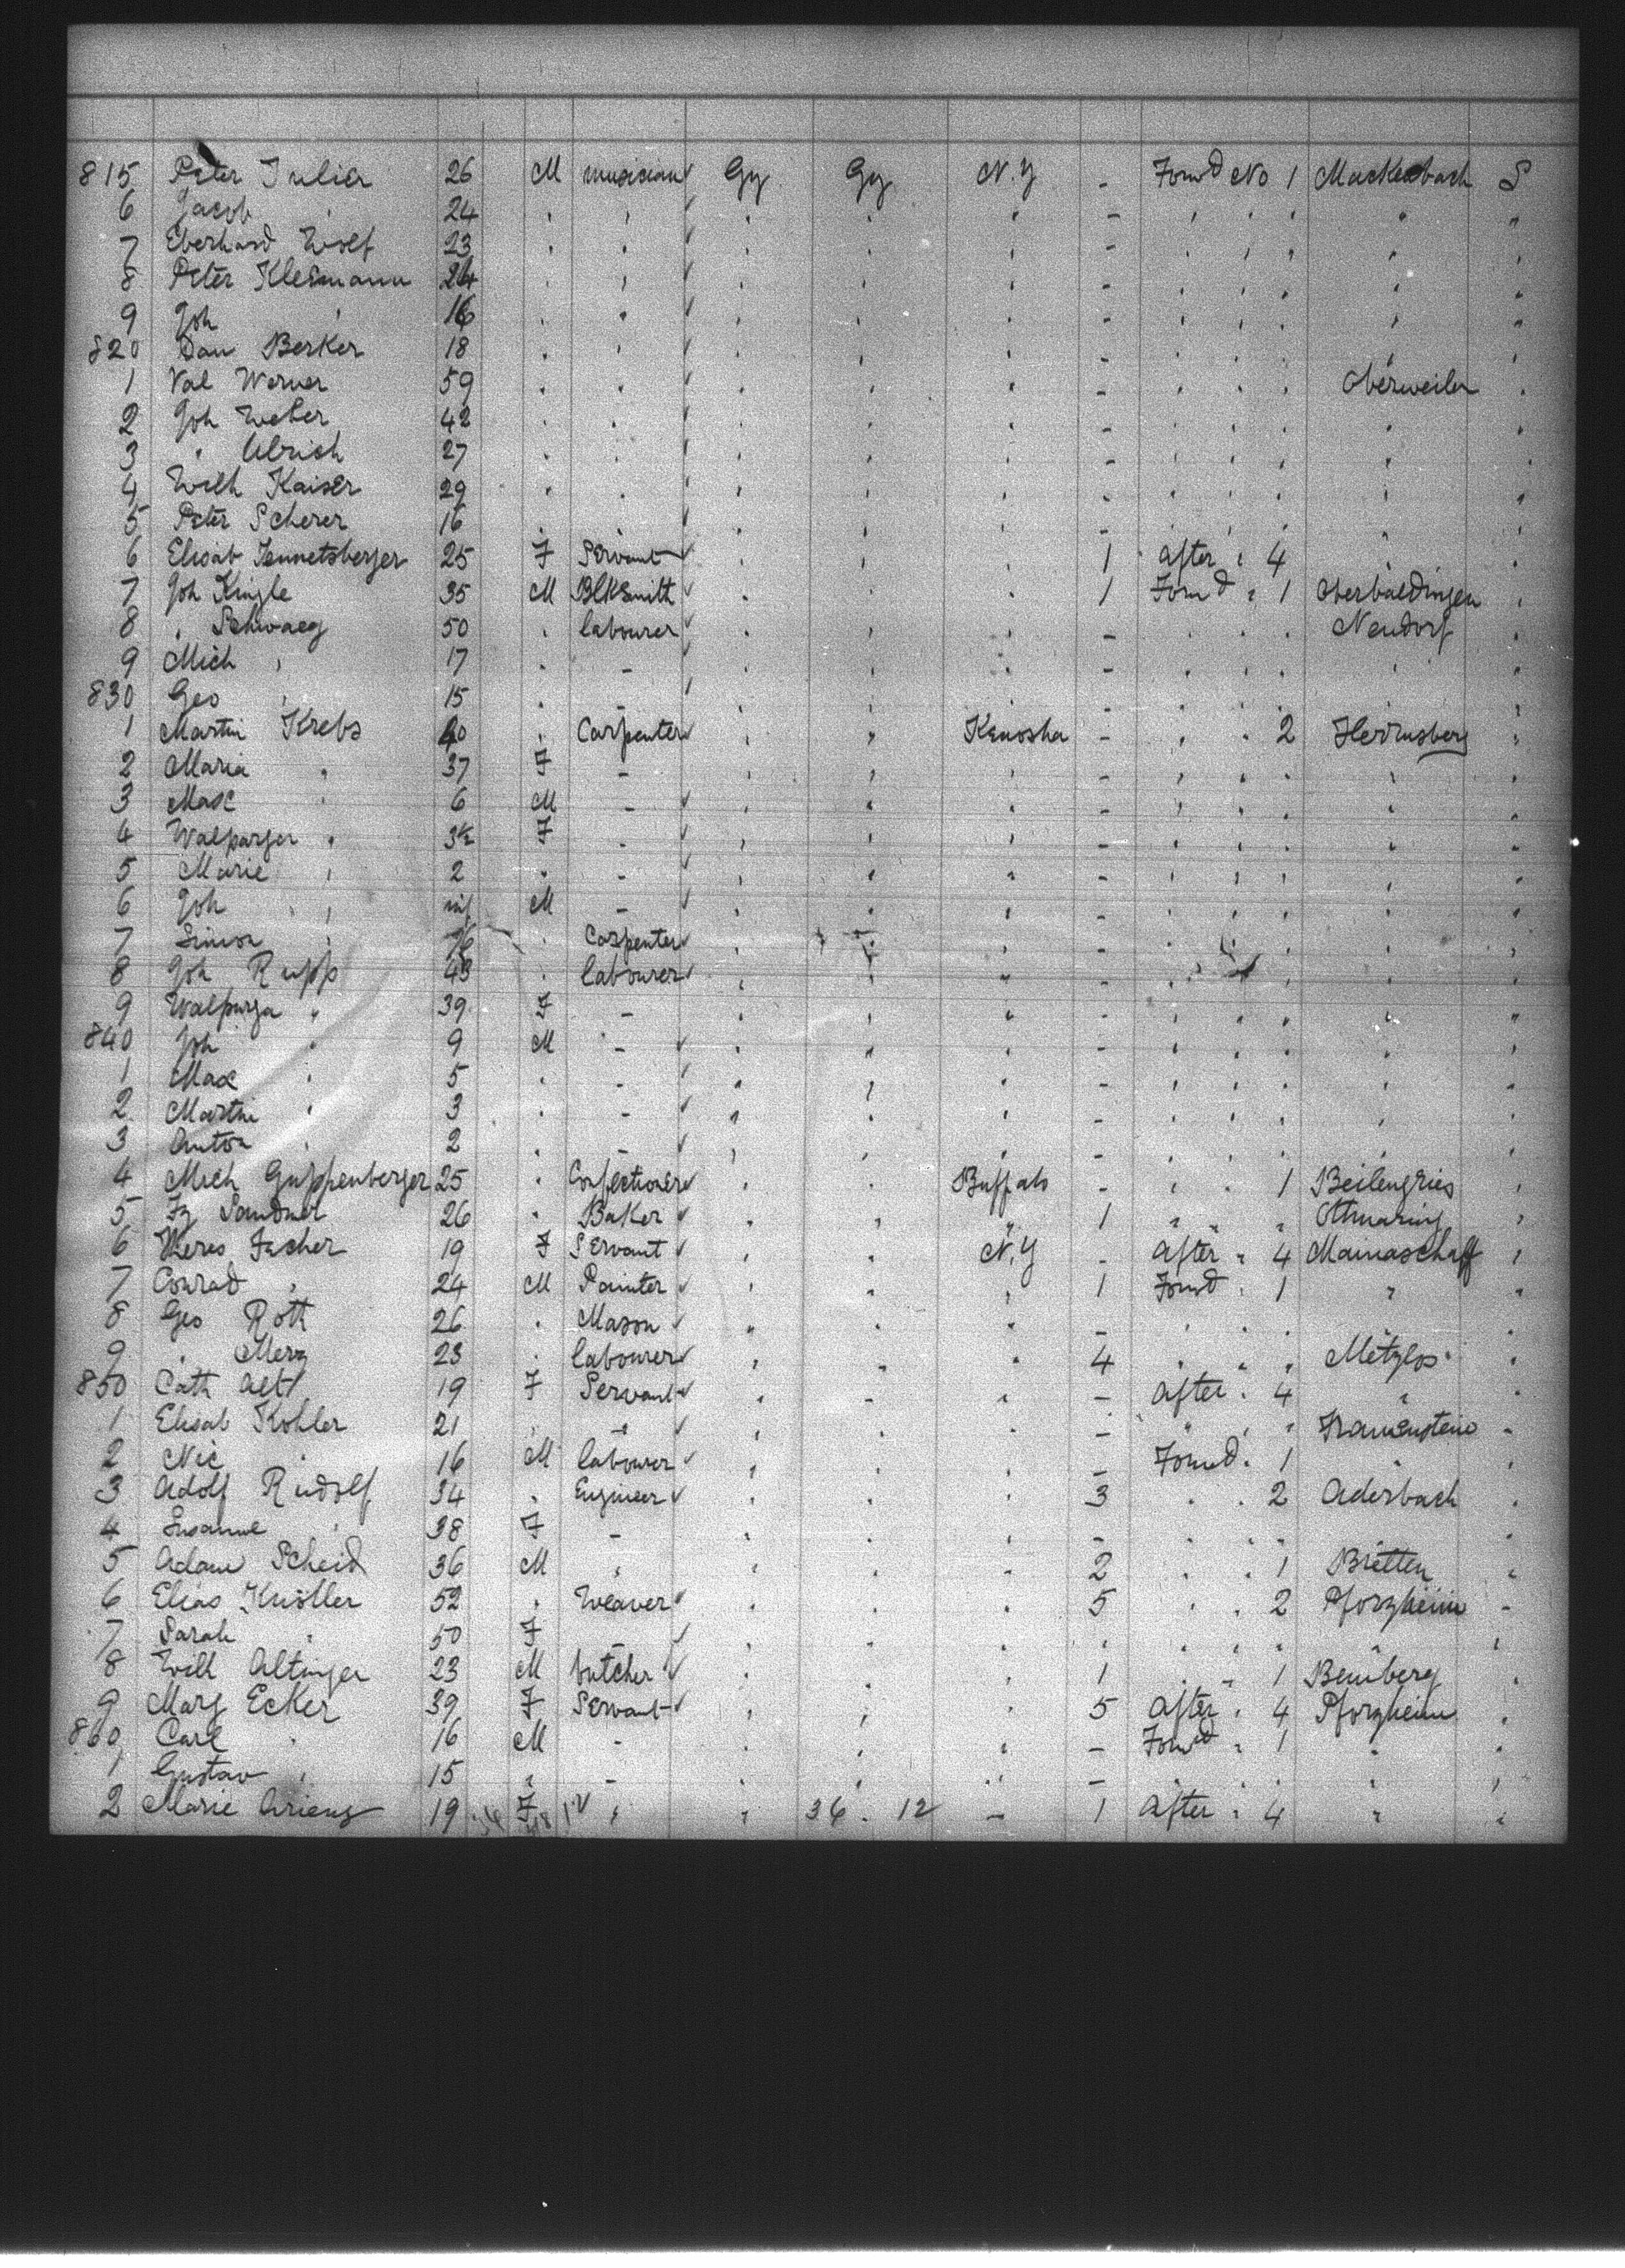 815 Peter Julier 26 M musician Gy Gy N.Y - Forwd No 1 Mackenbach S
6 Jacob " 24 " " " " " - " " " " "
7 Eberhard Wolf 23 " " " " " - " " " " "
8 Peter Klesmann 24 " " " " " - " " " " "
9 Joh " 16 " " " " " - " " " " "
820 Dan Berker 18 " " " " " - " " " " "
1 Val Werner 59 " " " " " - " " " Oberweiler "
2 Joh Weber 42 " " " " " - " " " " "
3 " Ulrich 27 " " " " " - " " " " "
4 Wilh Kaiser 29 " " " " " - " " " " "
5 Peter Scherer 16 " " " " " - " " " " "
6 Elisab 25 F Servant " " " 1 After " 4 " "
7 Joh Kingle 35 M BlkSmith " " " 1 Forwd " 1 Oberbaldingen "
8 " Schwaeg 50 " labourer " " " - " " " Neudorf "
9 Mich " 17 " - " " " - " " " " "
830 Geo " 15 " - " " " - " " " " "
1 Martin Krebs 40 " Carpenter " " Kenosha - " " 2 "
2 Maria " 37 F - " " " - " " " " "
3 Max " 6 M - " " " - " " " " "
4 Walparger " 3½ F - " " " - " " " " "
5 Marie " 2 " - " " " - " " " " "
6 Joh " inf M - " " " - " " " " "
7 Simon " " Carpenter " " " - " " " " "
8 Joh Rupp 43 " labourer " " " - " " " " "
9 Walpurga " 39 F - " " " - " " " " "
840 Joh " 9 M - " " " - " " " " "
1 Max " 5 " - " " " - " " " " "
2 Martin " 3 " - " " " - " " " " "
3 Anton " 2 " - " " " - " " " " "
4 Mich Guppenberger 25 " Confectioner " " Buffalo - " " 1 Beilengries "
5 Fz Sandner 26 " Baker " " " 1 " " " Ottmaring "
6 Theres Fascher 19 F Servant " " N.Y - After " 4 Mainaschaff "
7 Conrad " 24 M Painter " " " 1 Forwd " 1 " "
8 Geo Roth 26 " Mason " " " - " " " " "
9 " Merz 23 " labourer " " " 4 " " " Metzlos "
850 Cath Alt 19 F Servant " " " - After " 4 " "
1 Elisab Kohler 21 " " " " " - " " " Frauenstein "
2 Nic " 16 M labourer " " " - Forwd " 1 " "
3 Adolf Rudolf 34 " Engineer " " " 3 " " 2 Aderbach "
4 Susanne " 38 F - " " " - " " " " "
5 Adam Scheid 36 M " " " " 2 " " 1 Bretten "
6 Elias Knöller 52 " Weaver " " " 5 " " 2 Pforzheim "
7 Sarah " 50 F " " " " " " " " "
8 Wilh Altinger 23 M butcher " " " 1 " " 1 "
9 Marg Ecker 39 F Servant " " " 5 After " 4 Pforzheim "
860 Carl " 16 M - " " " - Forwd " 1 " "
1 Gustav " 15 " - " " " - " " " " "
2 Marie Ariens 19 F " " 36 . 12 - 1 After " 4 " "